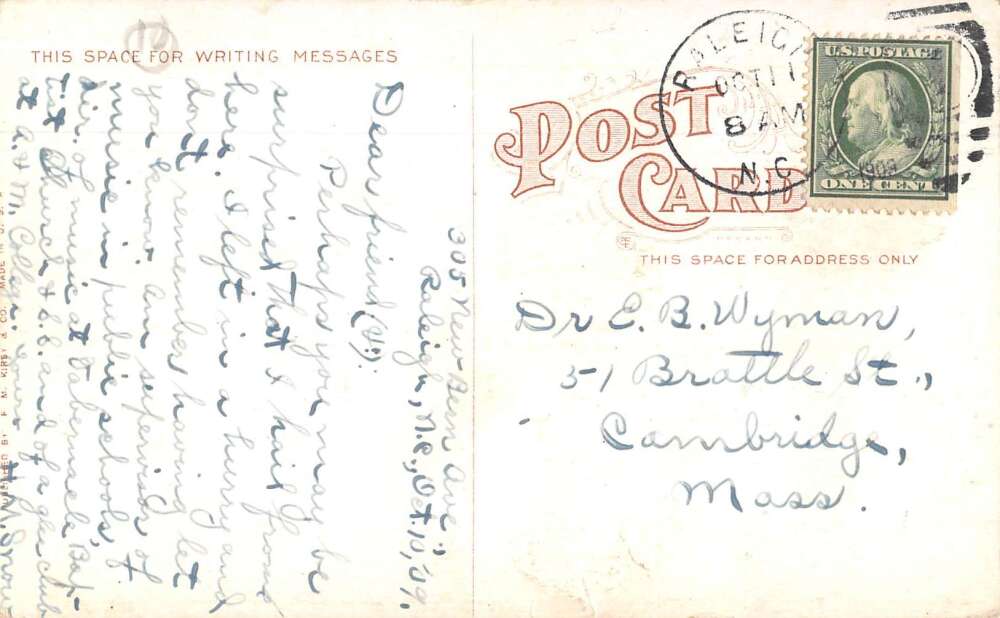 THIS SPACE FOR WRITING MESSAGES
305 New Bern Ave.,
Raleigh, N.C., Oct. 10, '09.
Dear friend (s):
Perhaps you may be
surprised that I hail from
here. I left in a hurry and
don't remember having let
you know. Am supervisor of
music in public schools,
dir. of music at Tabernacle Bap-
tist Church & S.S. and of a glee club
at A. & M. College. Yours
M. Snow
MADE IN U.S.
POST
CARD
THIS SPACE FOR ADDRESS ONLY
RALEIGH
OCT 11
8 AM
1909
N.C.
U.S. POSTAGE
ONE CENT
Dr E. B. Wyman,
51 Brattle St.,
Cambridge,
Mass.